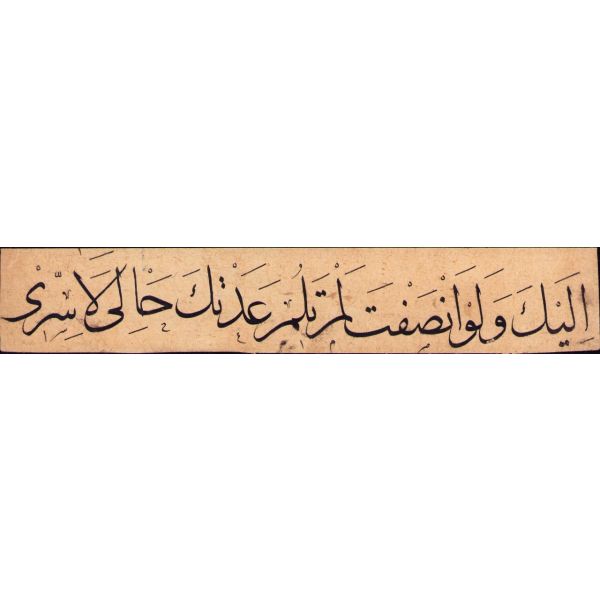 اِلَيْكَ وَلَوْ اَنْصَفْتَ لَمْ تَلُمِ عَدَتْكَ حَالِىَ لَا سِرِّىْ